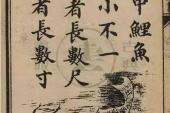 中鯉魚
小不一
者長數尺
者長數寸